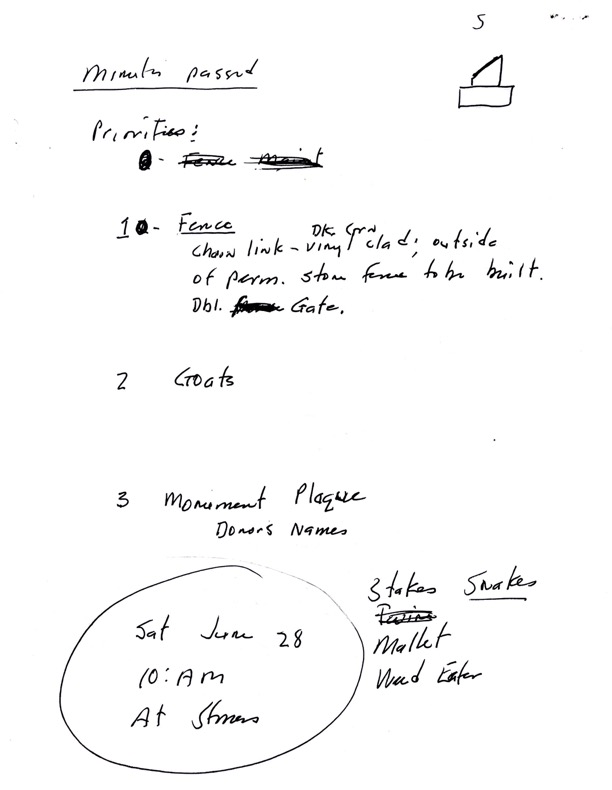 5
Minutes passed
Priorities:
- Fence Maint
1 - Fence
Dk. Grn
chain link - vinyl clad; outside
of perm. stone fence to be built.
Dbl. Gate.
2 Goats
3 Monument Plaque
Donors Names
Stakes Snakes
Twine
Mallet
Weed Eater
Sat June 28
10: AM
At